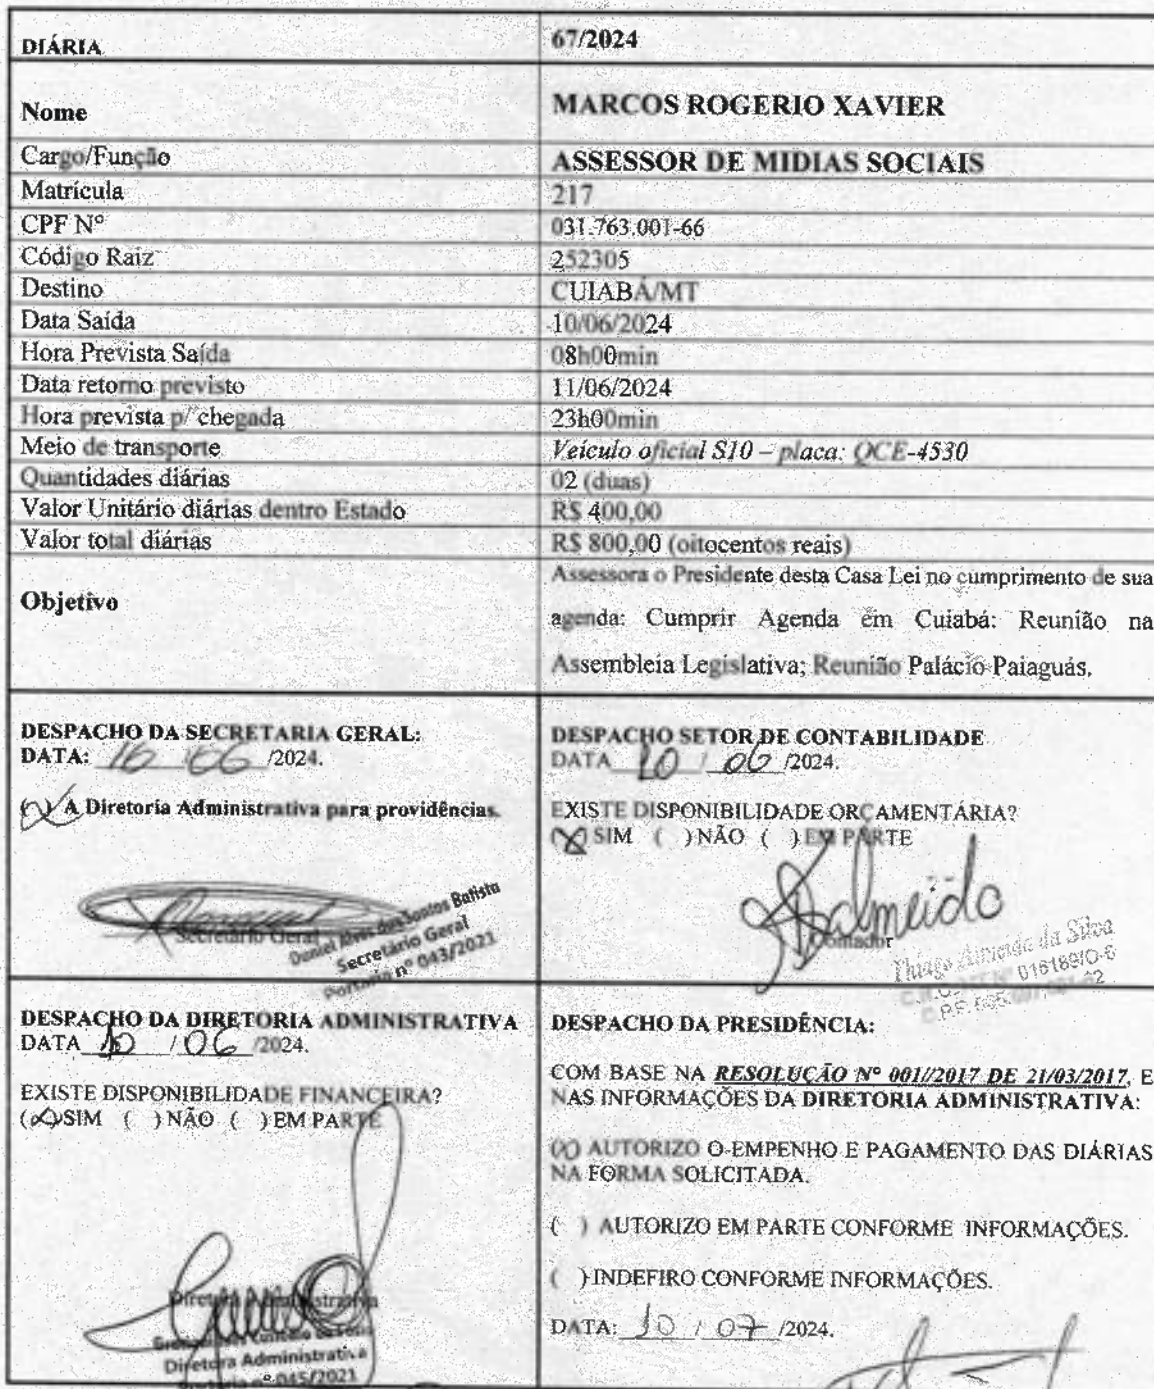 DIÁRIA 67/2024
Nome MARCOS ROGERIO XAVIER
Cargo/Função ASSESSOR DE MIDIAS SOCIAIS
Matrícula 217
CPF Nº 031.763.001-66
Código Raiz 252305
Destino CUIABÁ/MT
Data Saída 10/06/2024
Hora Prevista Saída 08h00min
Data retorno previsto 11/06/2024
Hora prevista p/ chegada 23h00min
Meio de transporte Veículo oficial S10 – placa: QCE-4530
Quantidades diárias 02 (duas)
Valor Unitário diárias dentro Estado R$ 400,00
Valor total diárias R$ 800,00 (oitocentos reais)
Objetivo
Assessora o Presidente desta Casa Lei no cumprimento de sua
agenda: Cumprir Agenda em Cuiabá: Reunião na
Assembleia Legislativa; Reunião Palácio Paiaguás.
DESPACHO DA SECRETARIA GERAL:
DATA: 10 06 /2024.
(X) A Diretoria Administrativa para providências.
Secretário Geral
Daniel Alves dos Santos Batista
Secretário Geral
Portaria nº 043/2021
DESPACHO SETOR DE CONTABILIDADE
DATA 10 / 06 /2024.
EXISTE DISPONIBILIDADE ORÇAMENTÁRIA?
(X) SIM ( ) NÃO ( ) EM PARTE
Almeida
Contador
Thiago Almeida da Silva
016189/O-6
DESPACHO DA DIRETORIA ADMINISTRATIVA
DATA 10 / 06 /2024.
EXISTE DISPONIBILIDADE FINANCEIRA?
(X) SIM ( ) NÃO ( ) EM PARTE
Diretora Administrativa
Diretora Administrativa
Portaria nº 045/2021
DESPACHO DA PRESIDÊNCIA:
COM BASE NA RESOLUÇÃO Nº 001//2017 DE 21/03/2017, E
NAS INFORMAÇÕES DA DIRETORIA ADMINISTRATIVA:
(X) AUTORIZO O EMPENHO E PAGAMENTO DAS DIÁRIAS
NA FORMA SOLICITADA.
( ) AUTORIZO EM PARTE CONFORME INFORMAÇÕES.
( ) INDEFIRO CONFORME INFORMAÇÕES.
DATA: 10 / 07 /2024.